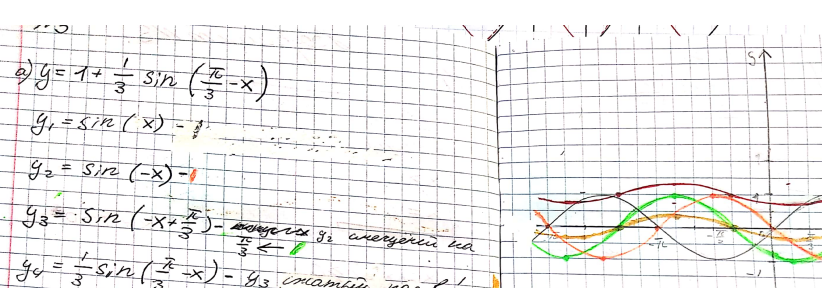 а) y = 1 + 1/3 sin (π/3 - x)
y₁ = sin (x) -
y₂ = sin (-x) -
y₃ = sin (-x + π/3) - y₂ смещённый на
π/3 ←
y₄ = 1/3 sin (π/3 - x) - y₃ сжатый
5
-π
-π/2
-1